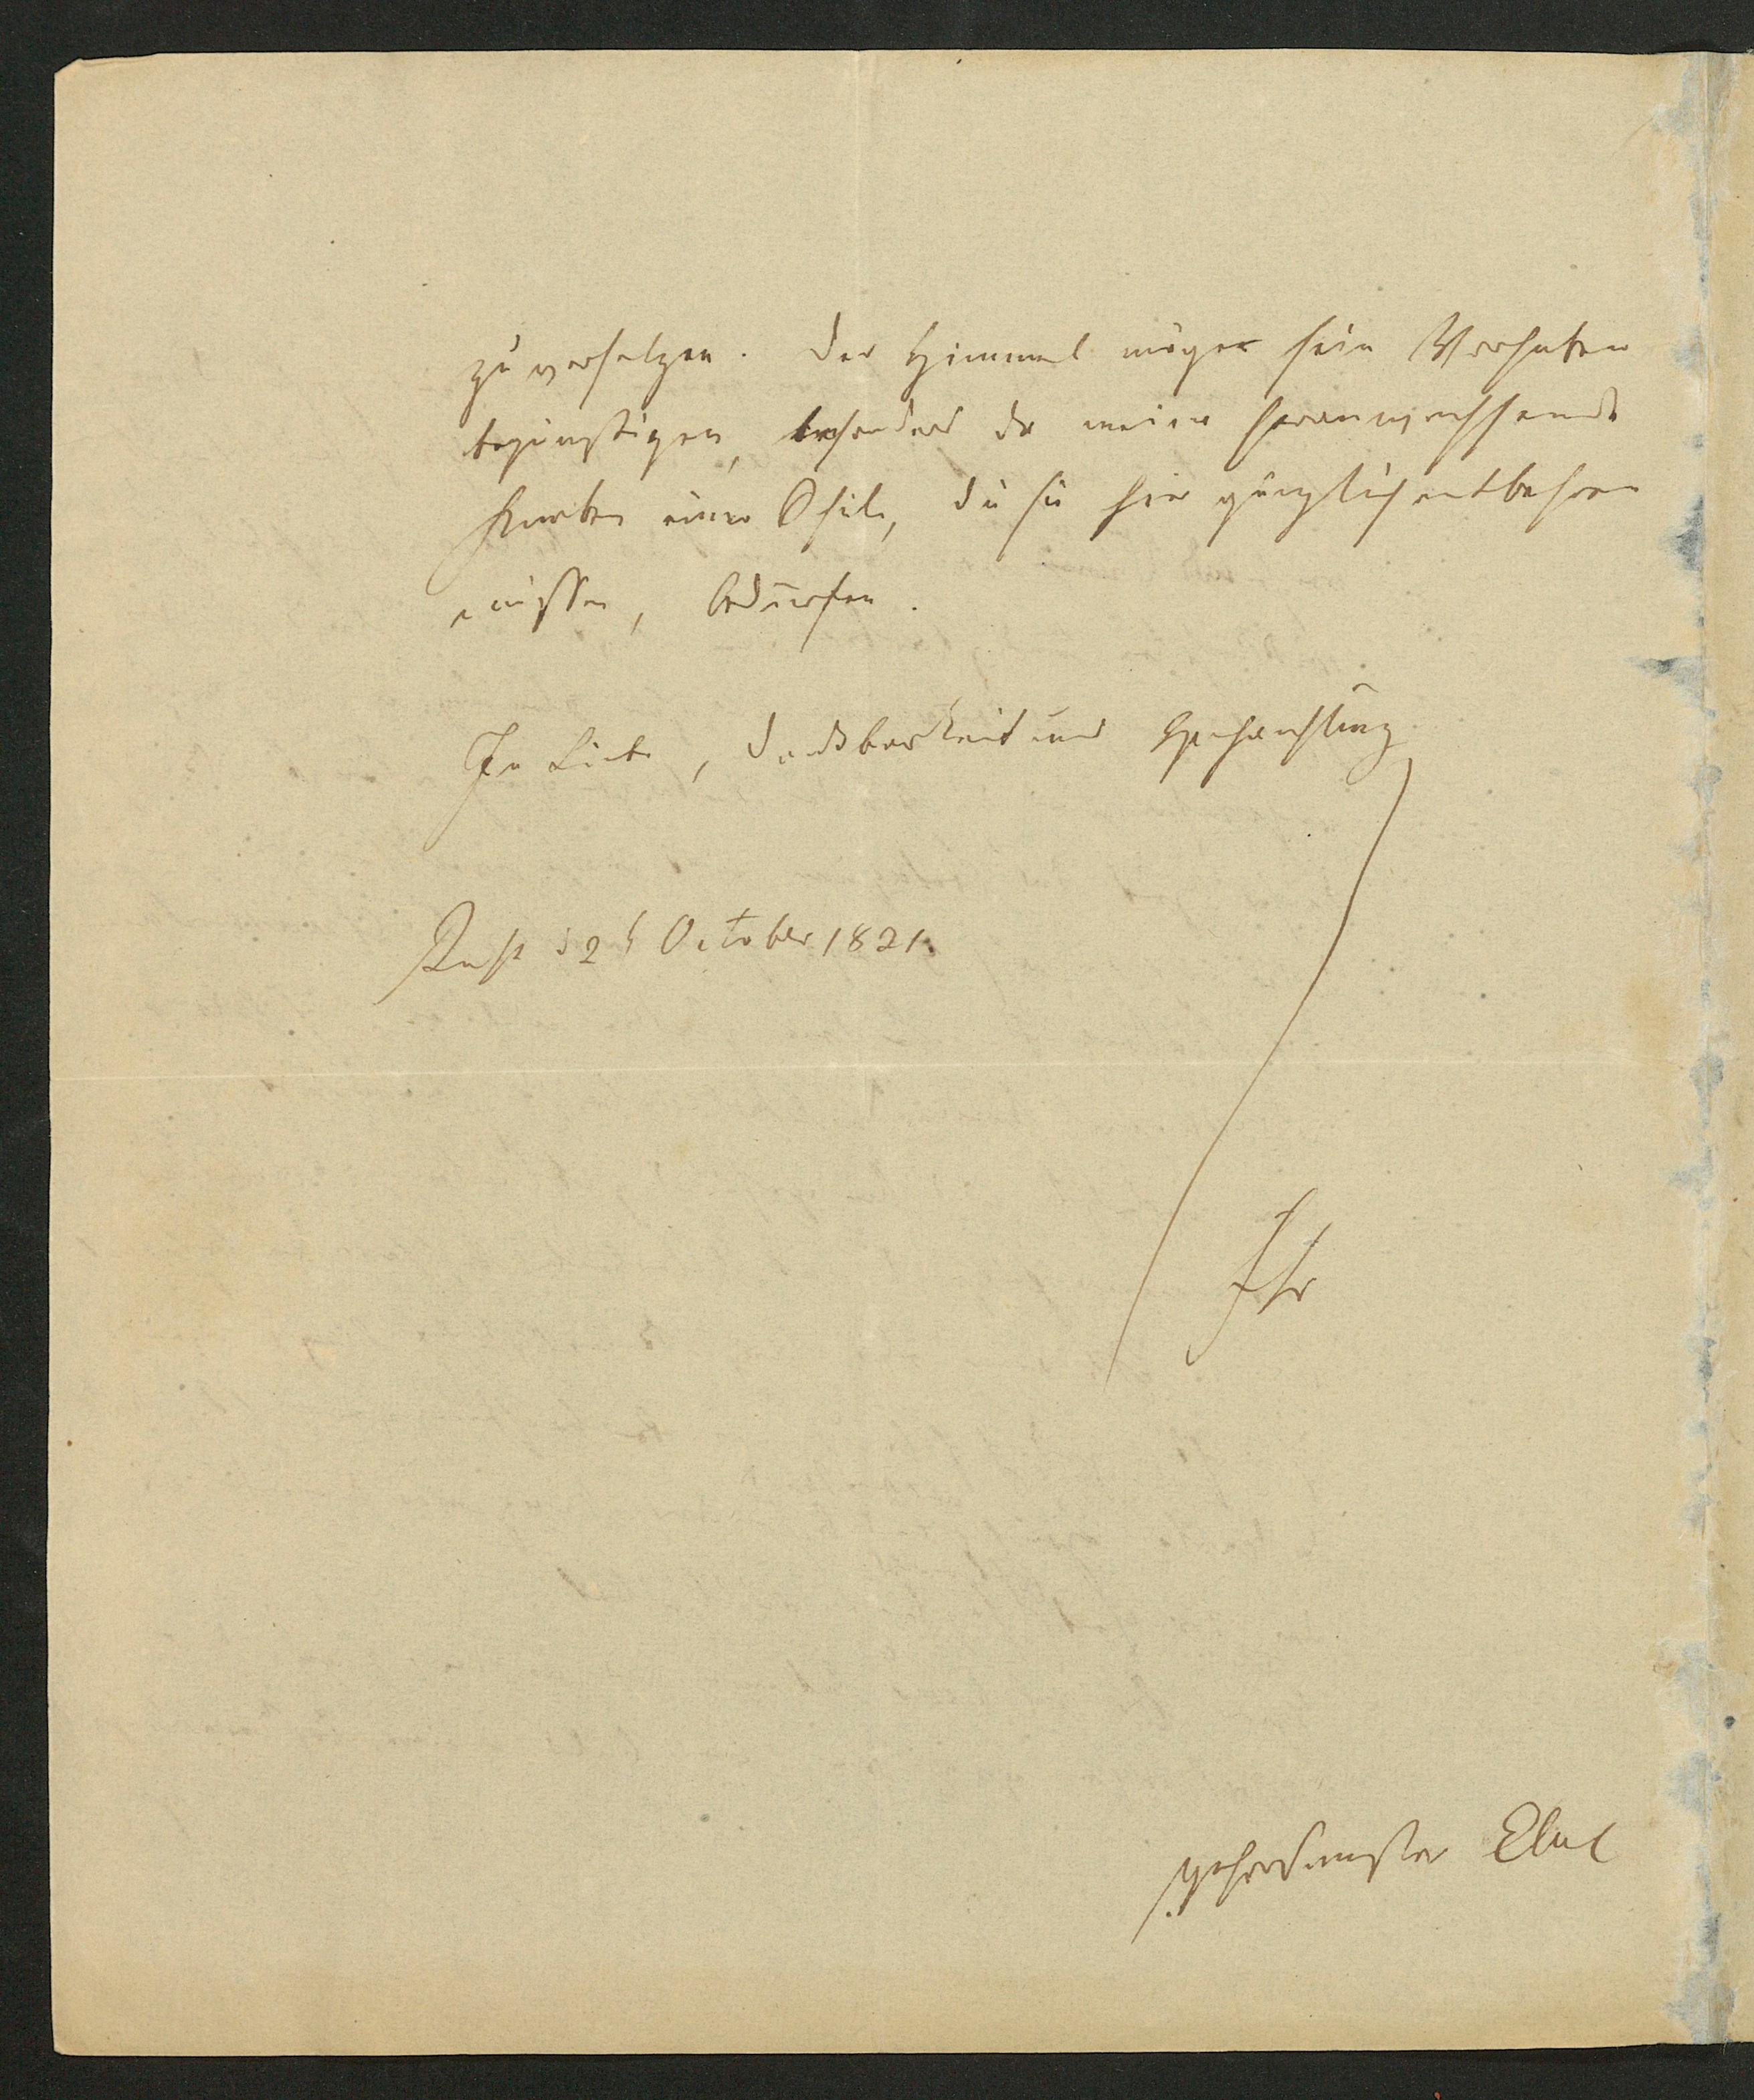 zu versetzen. Der Himmel möge sein Vorhaben
begünstigen, besonders da meine heranwachsende
Knaben einer Schule, die sie hier gänzlich entbehren
müssen, bedürfen.
In Liebe, Dankbarkeit und Hochachtung
October 1821.
Ihr
gehorsamster